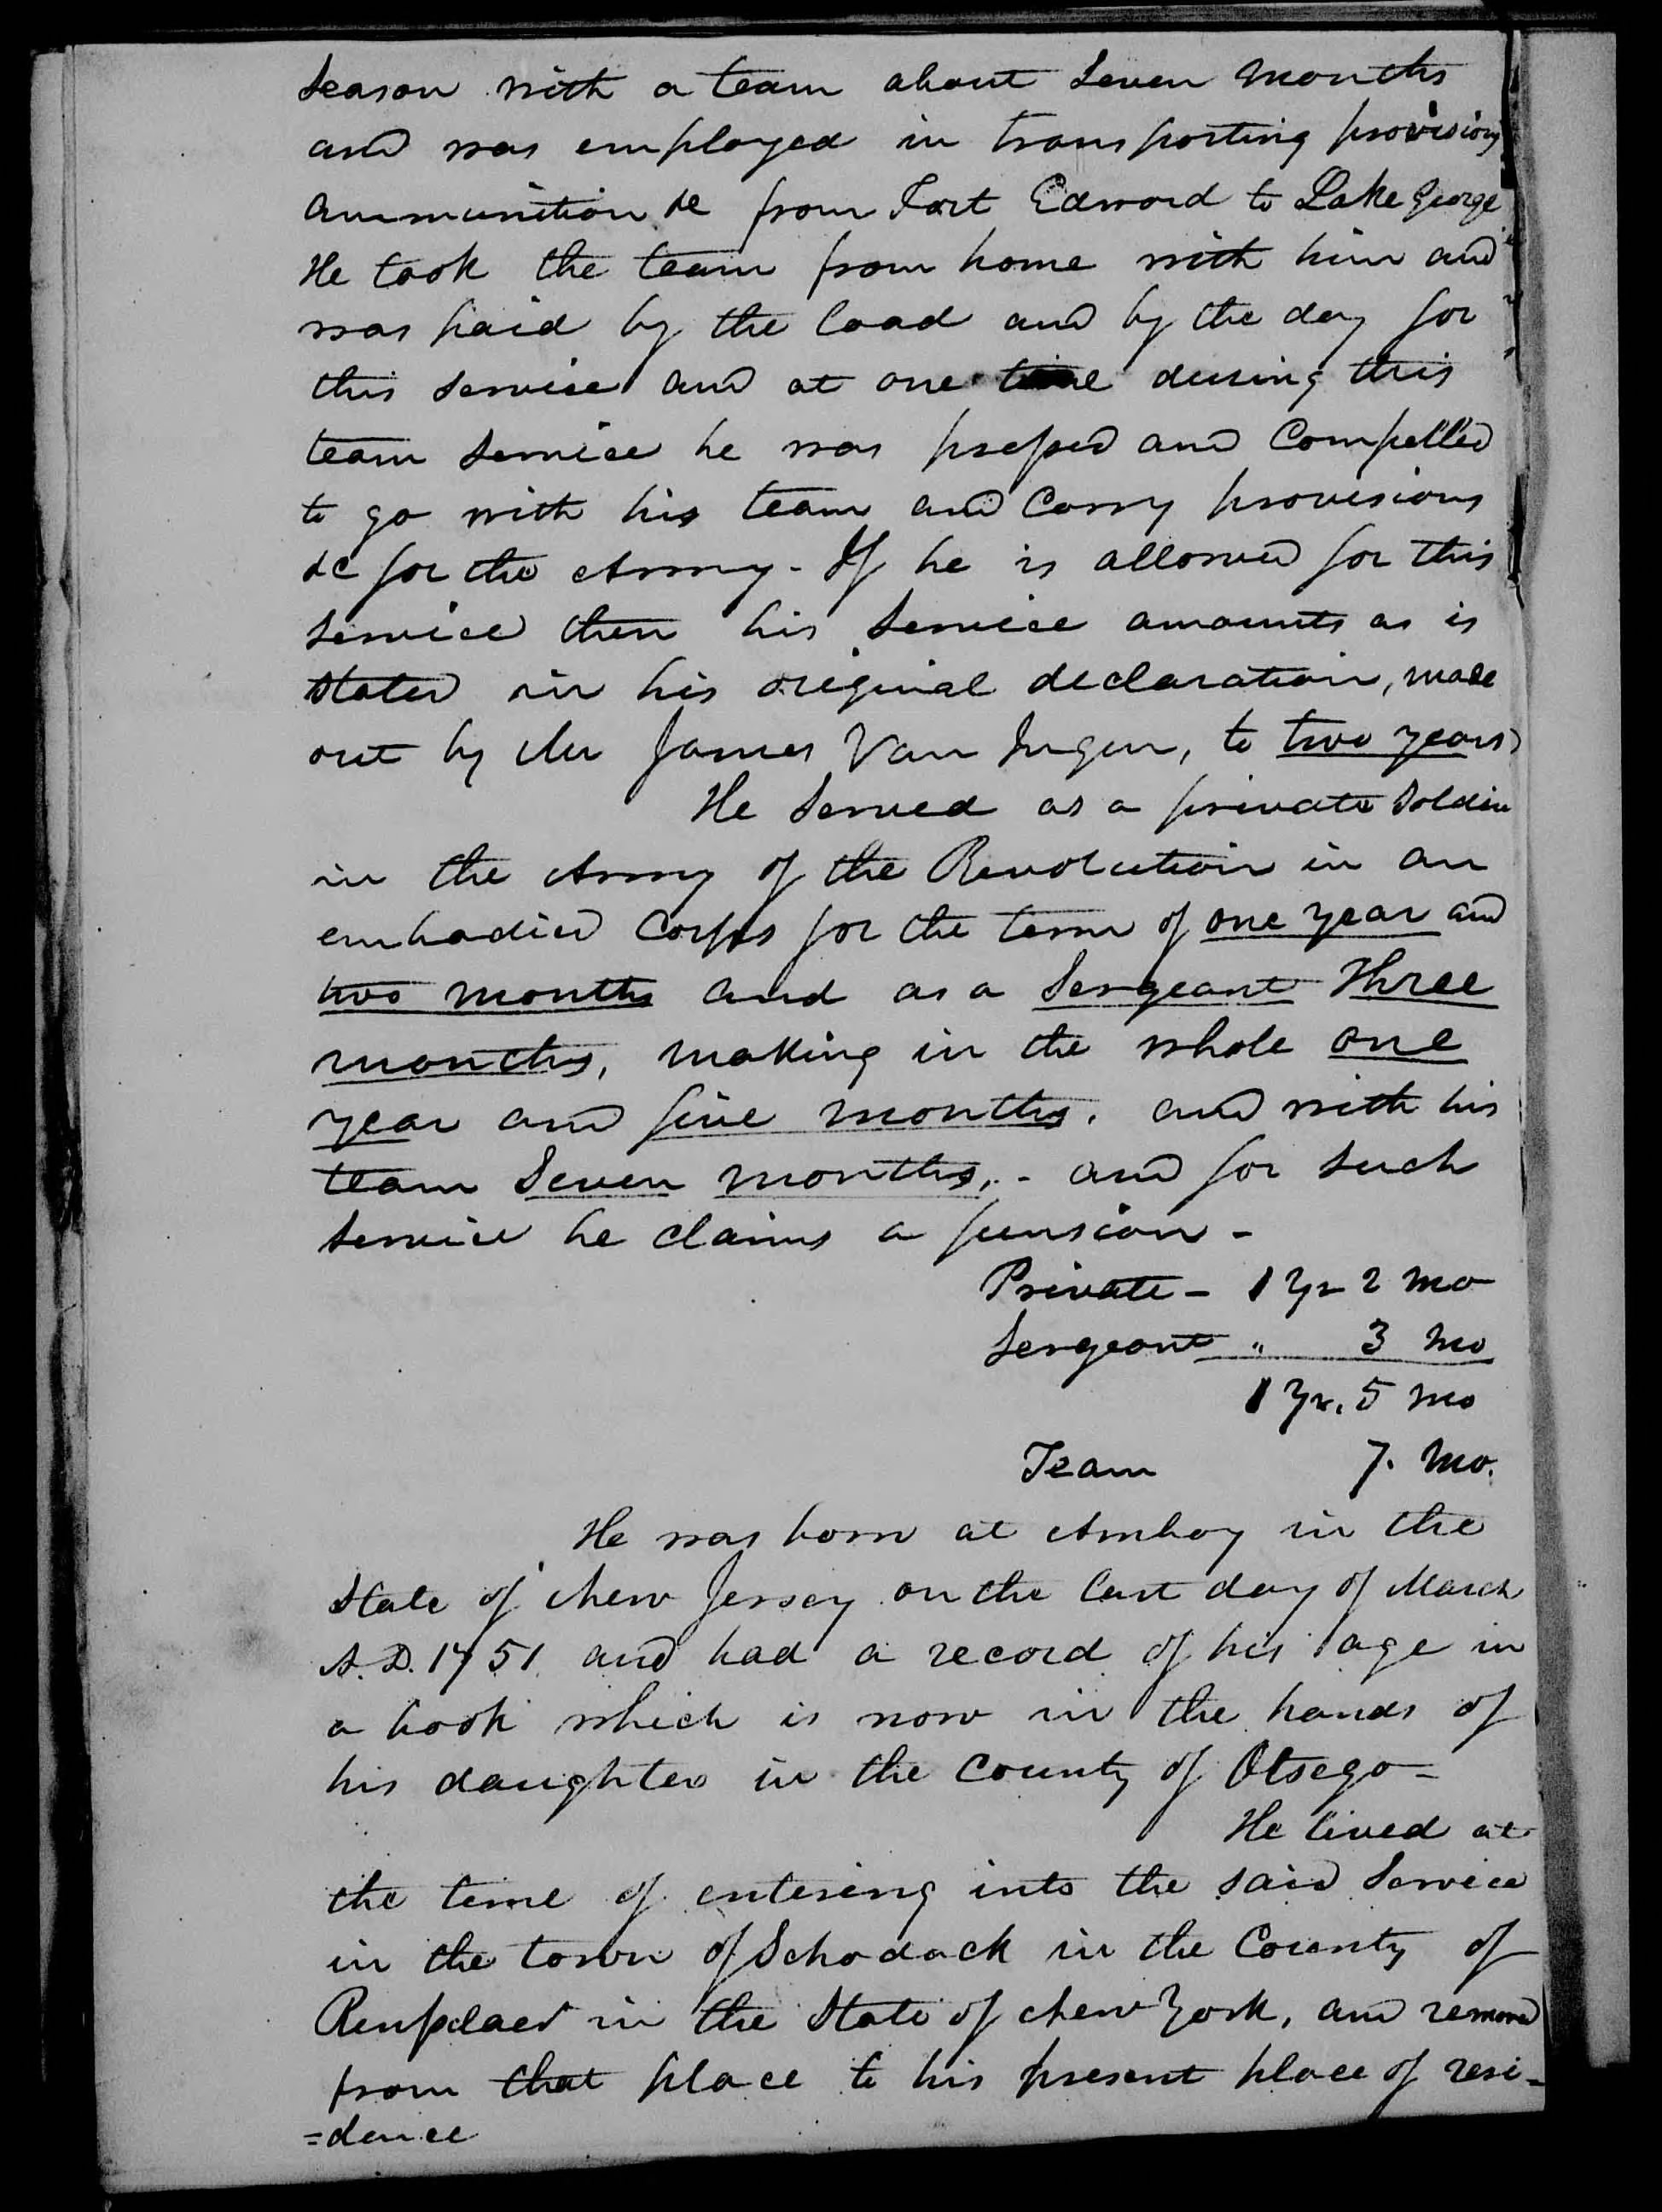 season with a team about seven months
and was employed in transporting provisions
ammunition &c from Fort Edward to Lake George
He took the team from home with him and
was paid by the load and by the day for
this service and at one time during this
team service he was pressed and Compelled
to go with his team and Carry provisions
&c for the Army - If he is allowed for this
service then his service amounts as is
stated in his original declaration, made
out by Mr James Van Ingen, to two years
He served as a private soldier
in the Army of the Revolution in an
embodied Corps for the term of one year and
two months and as a Sergeant Three
months, making in the whole one
year and five months. and with his
team Seven months, - and for such
service he claims a pension -
Private - 1 Yr 2 Mo
Sergeant " 3 Mo
1 Yr. 5 Mo
Team 7. Mo.
He was born at Amboy in the
State of New Jersey on the last day of March
A.D. 1751 and had a record of his age in
a book which is now in the hands of
his daughter in the County of Otsego -
He lived at
the time of entering into the said Service
in the town of Schodack in the County of
Rensselaer in the State of New York, and removed
from that place to his present place of resi-
=dence